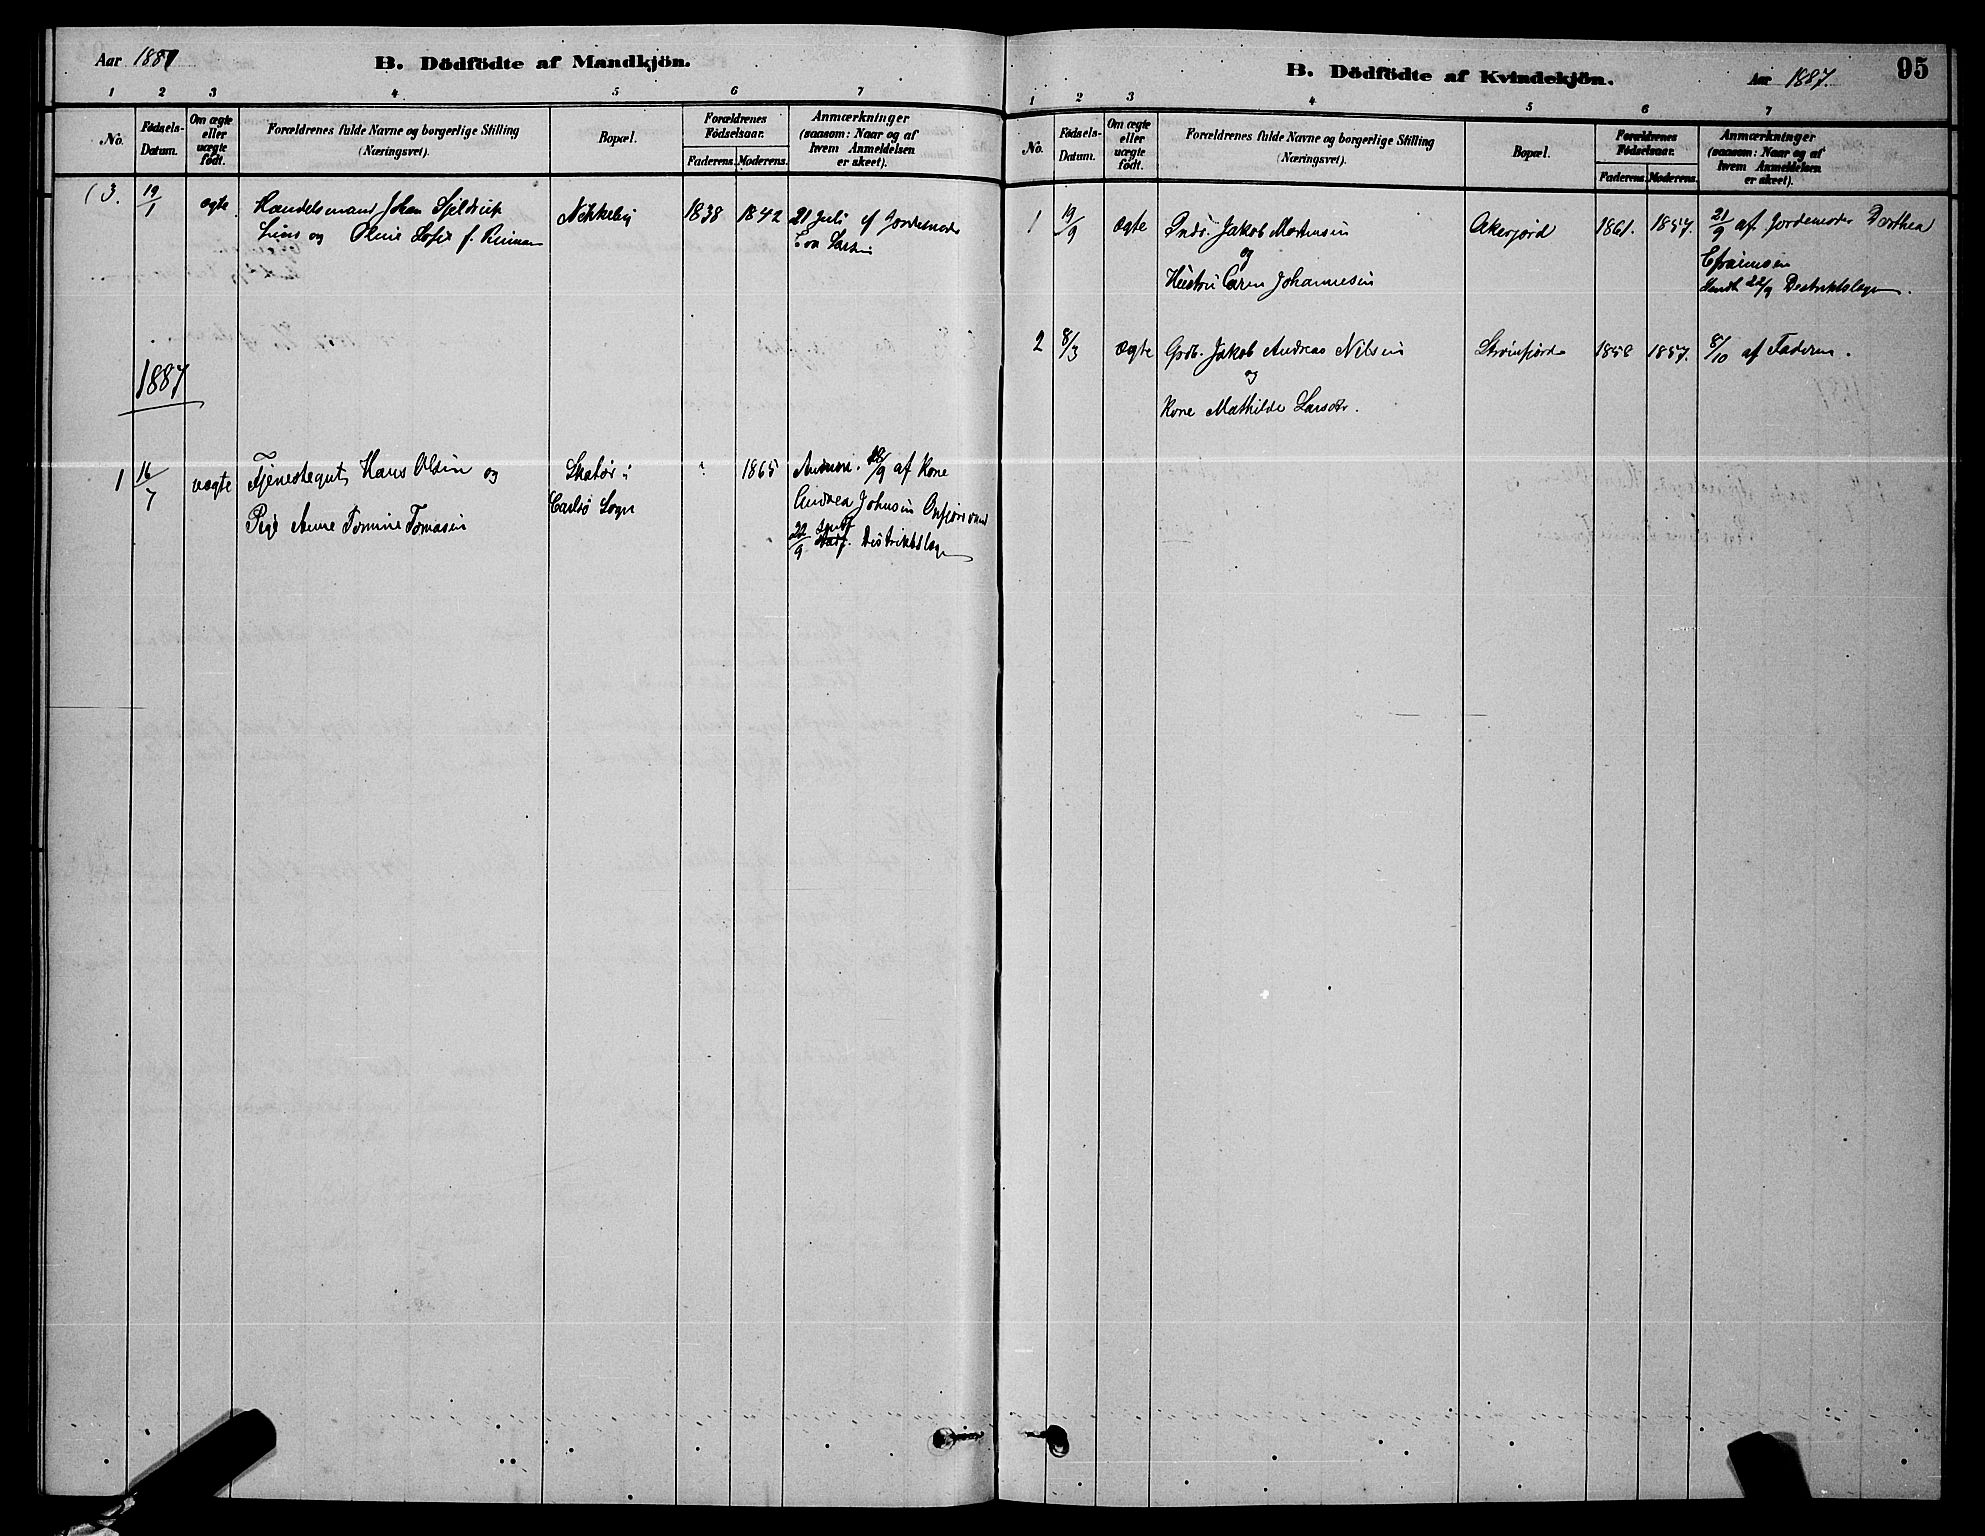 Aar 1887
B. Dödfödte af Mandkjön.
1 2 3 4 5 6 7
No.
Födsels-
Datum.
Om ægte
eller
uægte
födt.
Forældrenes fulde Navne og borgerlige Stilling
(Næringsvei).
Bopæl.
Forældrenes
Födselsaar.
Faderens. Moderens.
Anmærkninger
(saasom: Naar og af
hvem Anmeldelsen
er skeet).
(3. 19/1 ægte Handelsmand Johan Hjeldrup
og Oline Sofie f.
1838 1842
21 Juli af Jordemoder
Eva
1887
1 16/7 uægte Tjenestegut, Hans Olsen og
Pige Anne Tomine Tomasen
i
Carlsö Sogn
1865
/9 af Kone
Andrea Johnsen
22/9 Distriktslæge
B. Dödfödte af Kvindekjön.
Aar 1887.
95
1 2 3 4 5 6 7
No.
Födsels-
Datum.
Om ægte
eller
uægte
födt.
Forældrenes fulde Navne og borgerlige Stilling
(Næringsvei).
Bopæl.
Forældrenes
Födselsaar.
Faderens. Moderens.
Anmærkninger
(saasom: Naar og af
hvem Anmeldelsen
er skeet).
1 19/9 ægte Inds. Jakob Mortensen
og
Hustru Caren Johannesen
Akerjord 1861. 1857.
21/9 af Jordemoder Dorthea
Efraimsen
Sendt 22/9 Distriktslægen.
2 8/3 ægte Gdb. Jakob Andreas Nilsen
og
Kone Mathilde Larsdtr.
1858 1857. 8/10 af Faderen.